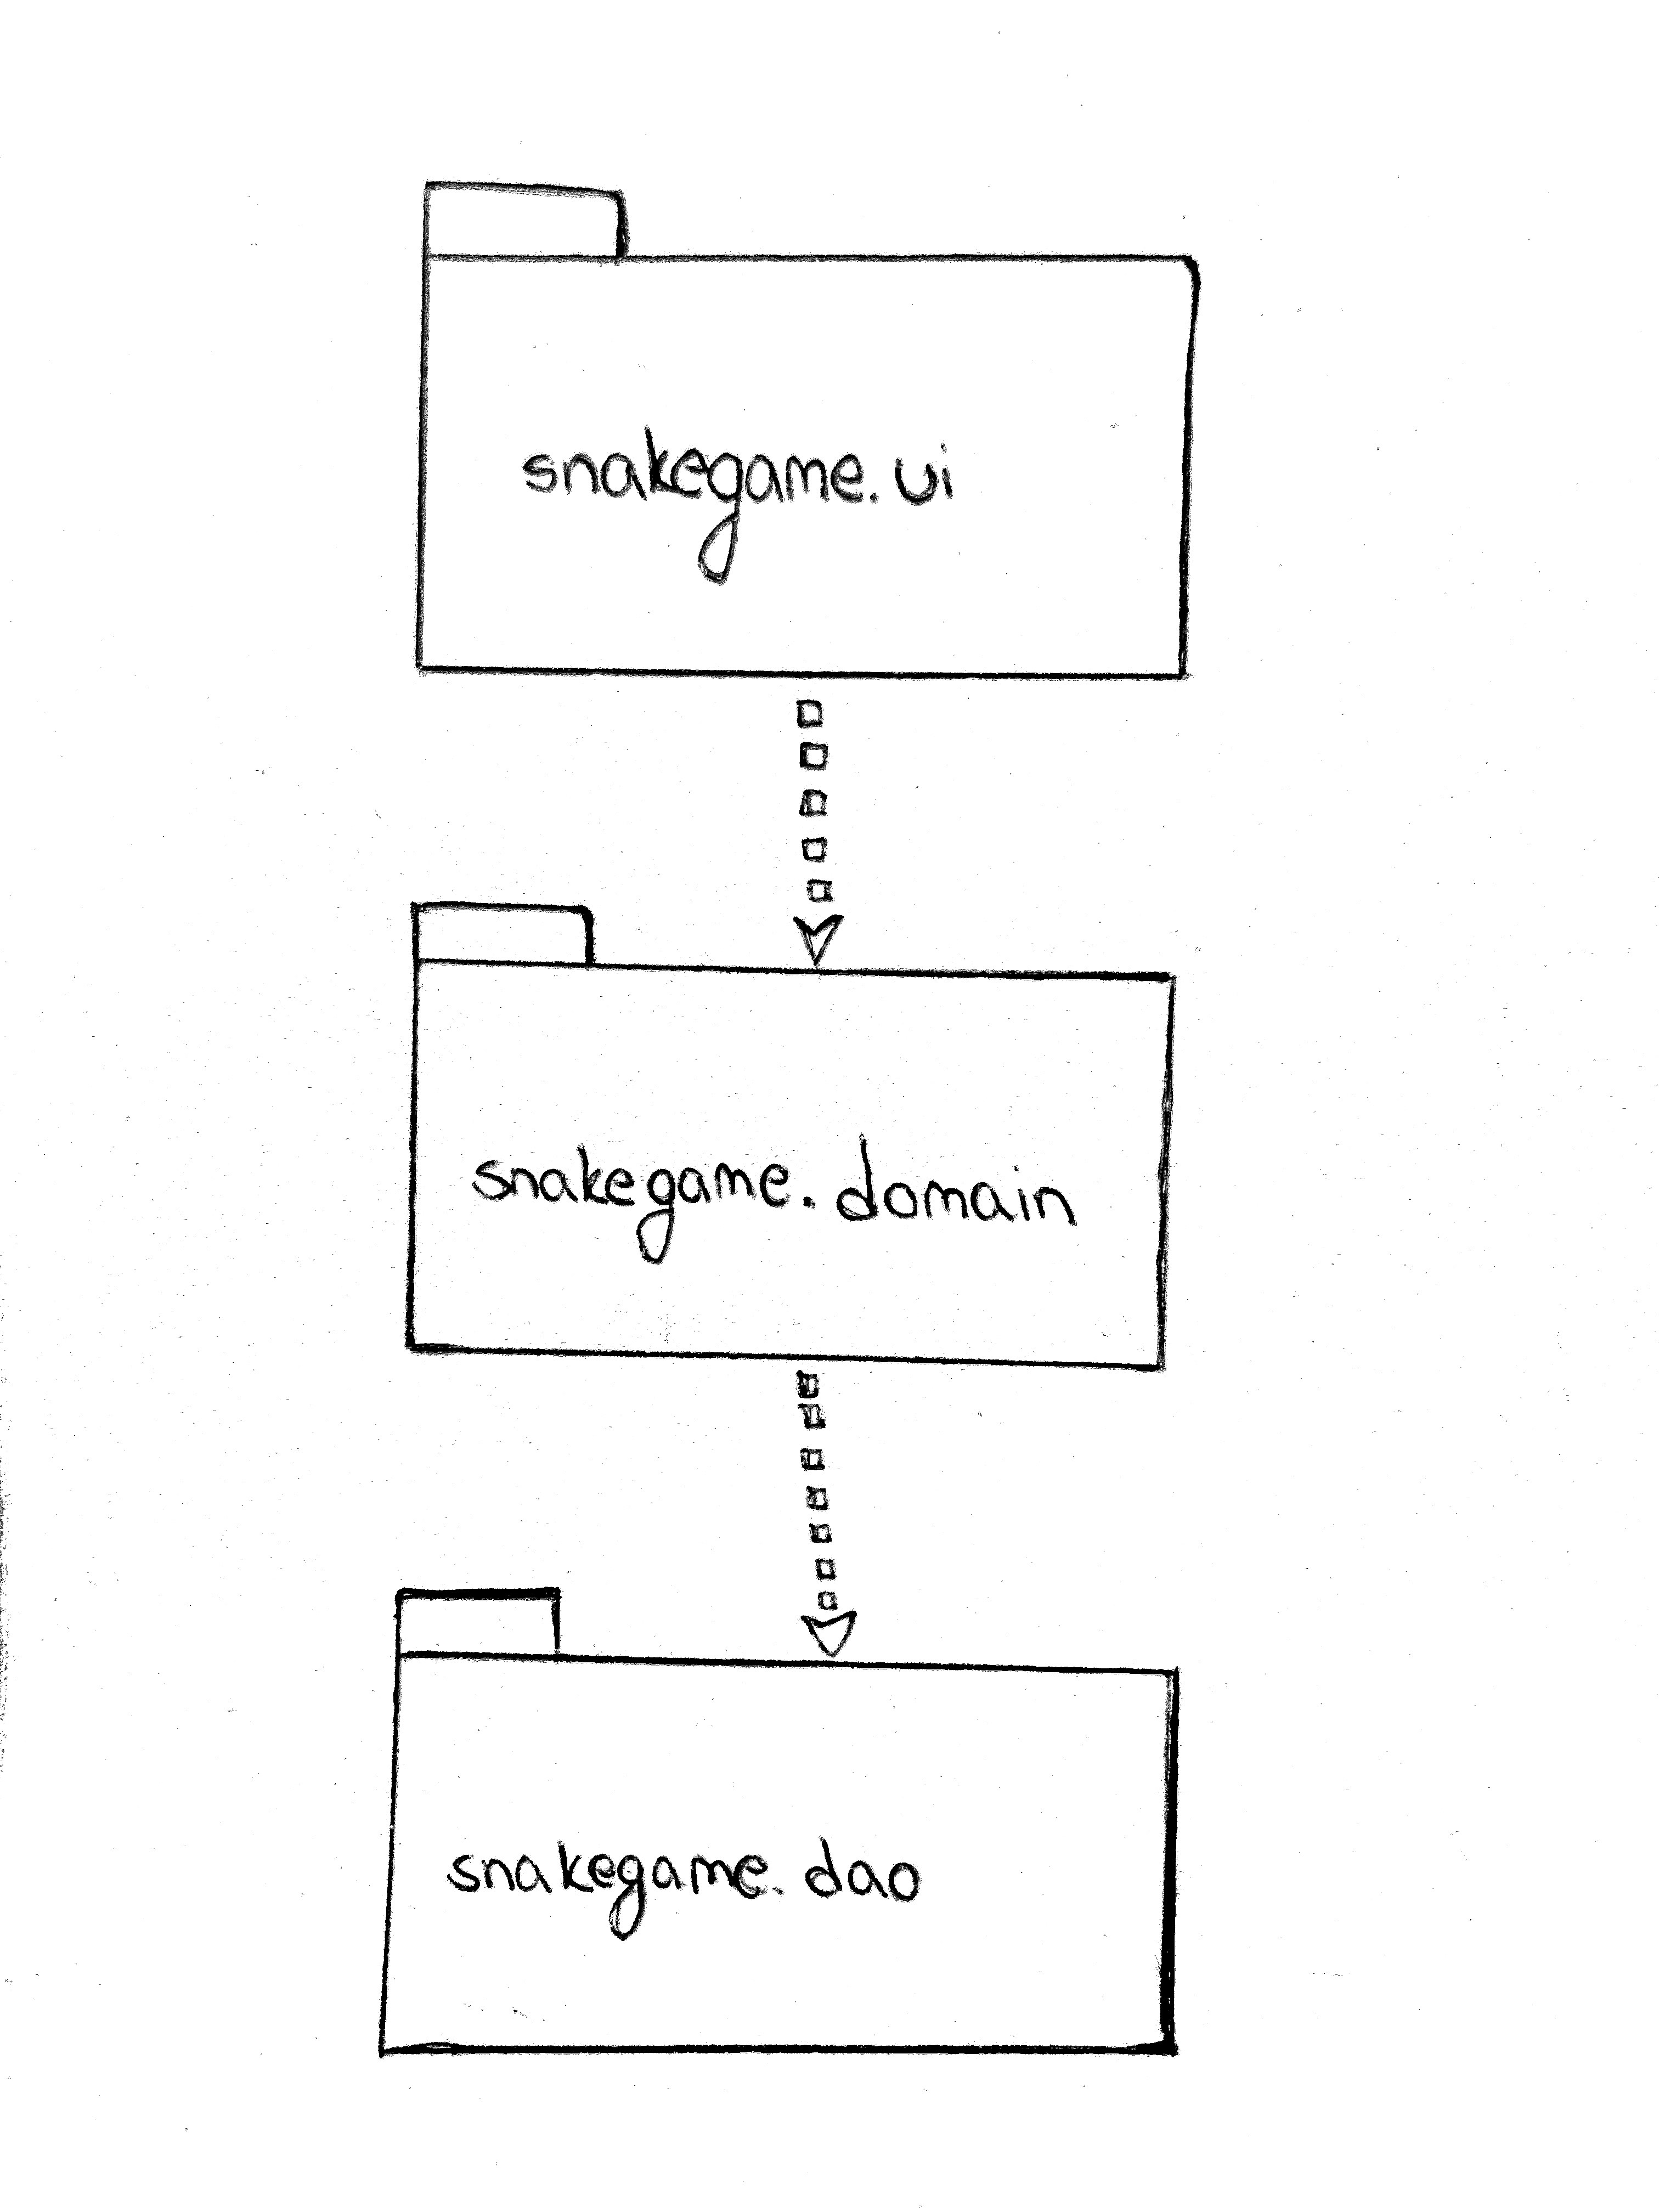 snakegame.ui
snakegame.domain
snakegame.dao